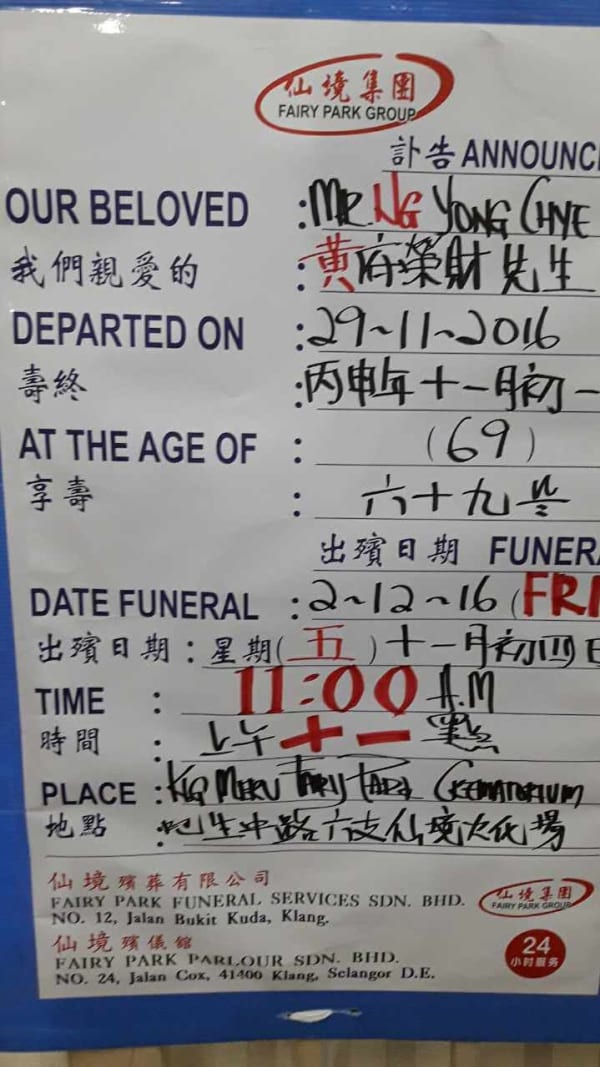 仙境集團
FAIRY PARK GROUP
訃告 ANNOUNC
OUR BELOVED : MR. NG YONG CHYE
我們親愛的 : 黄府榮財先生
DEPARTED ON : 29~11~2016
壽終 : 丙申年十一月初一
AT THE AGE OF : (69)
享壽 : 六十九
出殯日期 FUNERA
DATE FUNERAL : 2~12~16 (FRI
出殯日期 : 星期(五)十一月初四日
TIME : 11:00 A.M
時間 : 上午十一點
PLACE : KG MERU FAIRY PARK CREMATORIUM
地點 : 吧生中路六支仙境火化場
仙境殯葬有限公司
FAIRY PARK FUNERAL SERVICES SDN. BHD.
NO. 12, Jalan Bukit Kuda, Klang.
仙境集團
FAIRY PARK GROUP
仙境殯儀館
FAIRY PARK PARLOUR SDN. BHD.
NO. 24, Jalan Cox, 41400 Klang, Selangor D.E.
24
小时服务